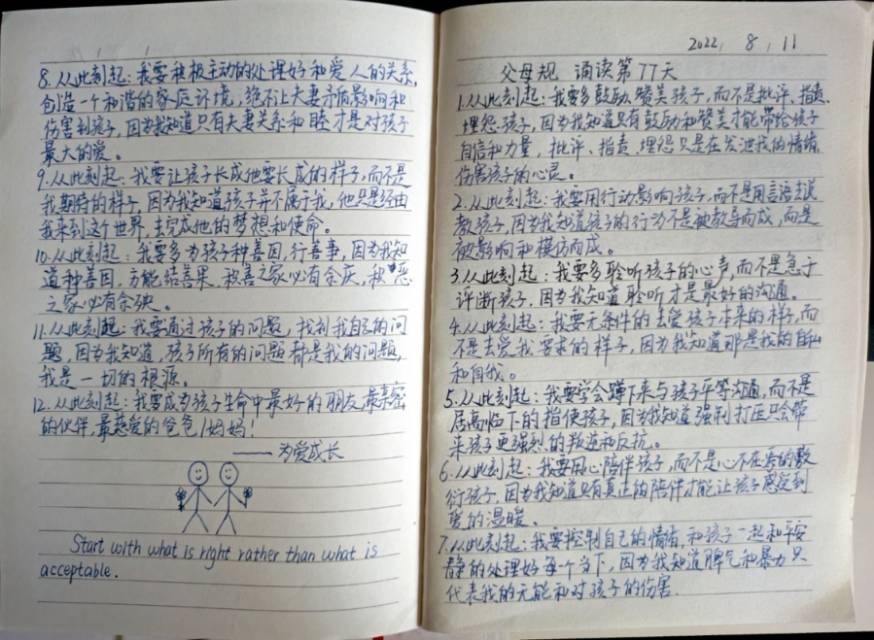 8.从此刻起:我要积极主动的处理好和爱人的关系,
创造一个和谐的家庭环境,绝不让夫妻矛盾影响和
伤害到孩子,因为我知道只有夫妻关系和睦才是对孩子
最大的爱。
9.从此刻起:我要让孩子长成他要长成的样子,而不是
我期待的样子,因为我知道孩子并不属于我,他只是经由
我来到这个世界,去完成他的梦想和使命。
10.从此刻起:我要多为孩子种善因,行善事,因为我知
道种善因,方能结善果,积善之家必有余庆,积恶
之家必有余殃。
11.从此刻起:我要通过孩子的问题,找到我自己的问
题,因为我知道,孩子所有的问题都是我的问题,
我是一切的根源。
12.从此刻起:我要成为孩子生命中最好的朋友,最亲密
的伙伴,最慈爱的爸爸/妈妈!
——为爱成长
Start with what is right rather than what is
acceptable.
2022, 8, 11
父母规 诵读第77天
1.从此刻起:我要多鼓励、赞美孩子,而不是批评、指责、
埋怨孩子,因为我知道只有鼓励和赞美才能带给孩子
自信和力量,批评、指责、埋怨只是在发泄我的情绪,
伤害孩子的心灵。
2.从此刻起:我要用行动影响孩子,而不是用言语去说
教孩子,因为我知道孩子的行为不是被教导而成,而是
被影响和模仿而成。
3.从此刻起:我要多聆听孩子的心声,而不是急于
评断孩子,因为我知道聆听才是最好的沟通。
4.从此刻起:我要无条件的去爱孩子本来的样子,而
不是去爱我要求的样子,因为我知道那是我的自私
和自我。
5.从此刻起:我要学会蹲下来与孩子平等沟通,而不是
居高临下的指使孩子,因为我知道强制打压只会带
来孩子更强烈的叛逆和反抗。
6.从此刻起:我要用心陪伴孩子,而不是心不在焉的敷
衍孩子,因为我知道只有真正的陪伴才能让孩子感受到
爱的温暖。
7.从此刻起:我要控制自己的情绪,和孩子一起和平安
静的处理好每个当下,因为我知道脾气和暴力只
代表我的无能和对孩子的伤害.